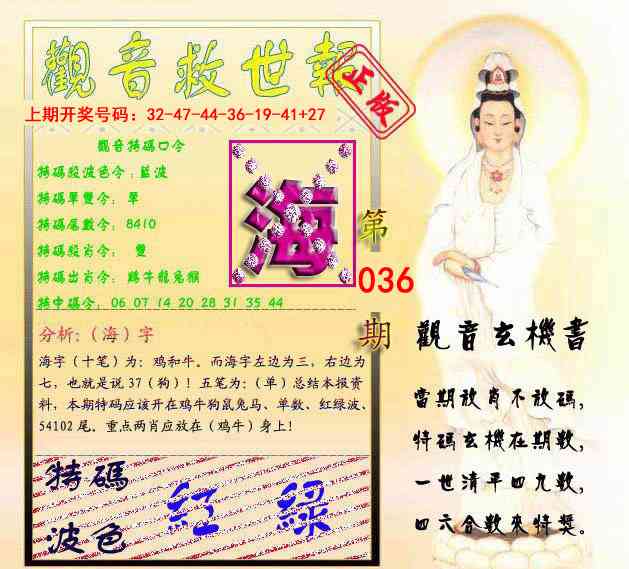 觀音救世報
正版
上期开奖号码：32-47-44-36-19-41+27
觀音特碼口令
特碼段波色令：藍波
特碼單雙令：單
特碼尾數令：8410
特碼段肖令：雙
特碼出肖令：鷄牛龍兔猴
特中碼令：06 07 14 20 28 31 35 44
海
第
036
期
分析:（海）字
海字（十笔）为：鸡和牛。而海字左边为三，右边为
七，也就是说37（狗）！五笔为：（单）总结本报资
料，本期特码应该开在鸡牛狗鼠兔马、单数、红绿波、
54102尾。重点两肖应放在（鸡牛）身上！
特碼
波色
紅 綠
觀音玄機書
當期放肖不放碼，
特碼玄機在期數，
一世清平四九數，
四六合數來特獎。